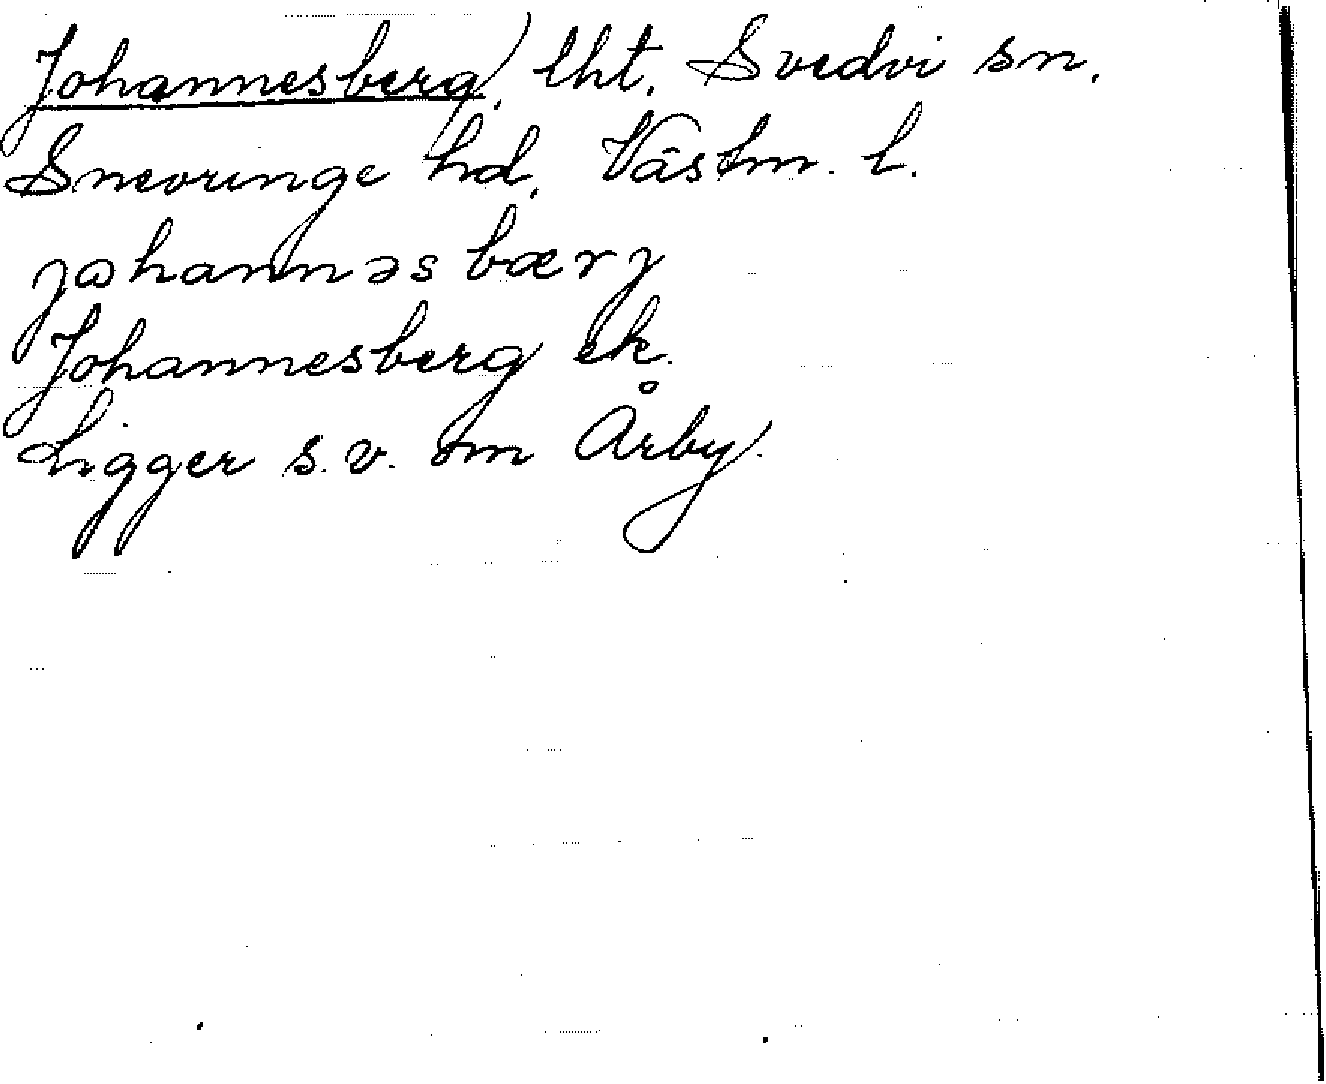 Johannesberg, lht. Svedvi sn.
Snevringe hd. Västm. l.
jɷhannəs bærj
Johannesberg ek.
Ligger s.v. om Årby.